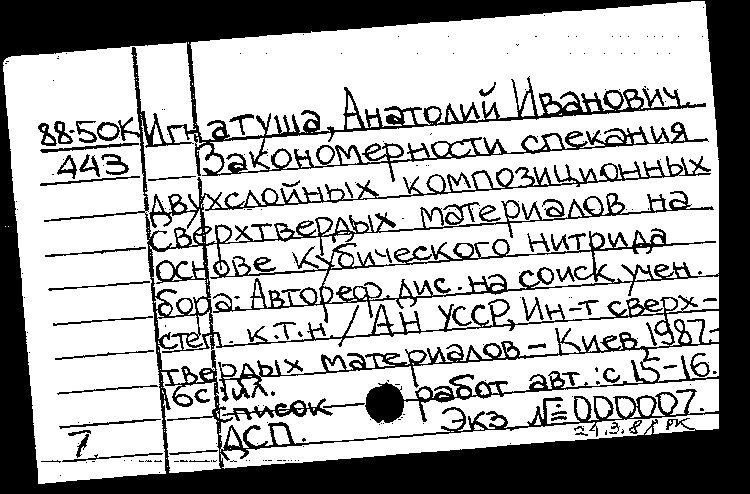 88-50К Игнатуша, Анатолий Иванович.
443 Закономерности спекания
двухслойных композиционных
сверхтвердых материалов на
основе кубического нитрида
бора: Автореф. дис. на соиск. учен.
степ. к.т.н. / АН УССР, Ин-т сверх-
твердых материалов. – Киев, 1987.-
16с. ил.
список работ авт.: с. 15-16.
7 ДСП. Экз №000007.